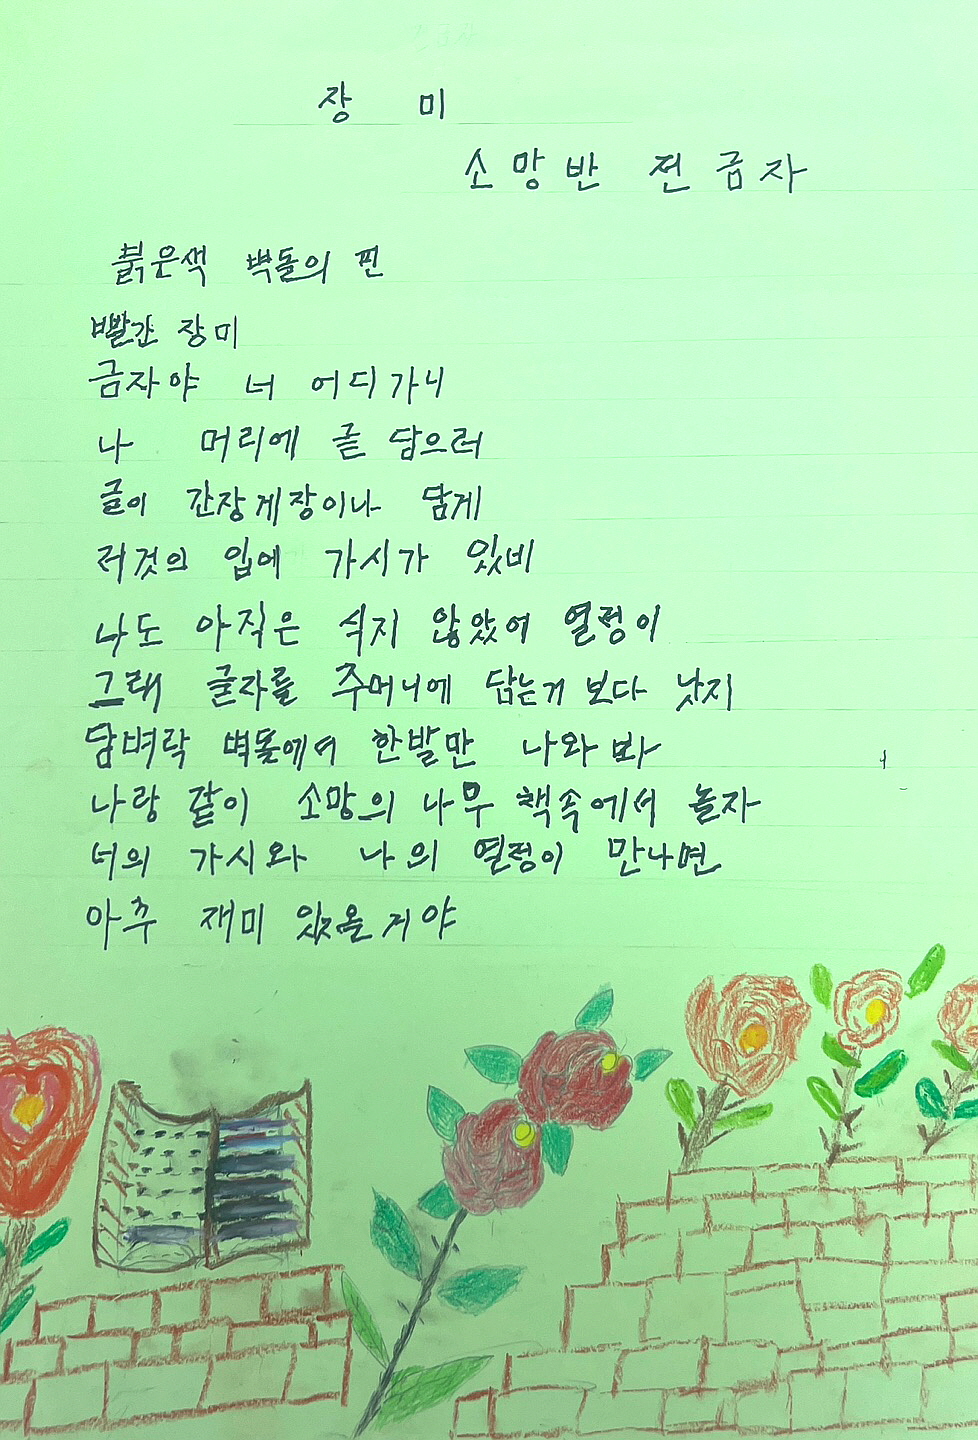 장 미
소망반 전금자
붉은색 벽돌의 핀
빨간 장미
금자야 너 어디가니
나 머리에 글 담으러
글이 간장게장이나 담게
저것의 입에 가시가 있비
나도 아직은 식지 않았어 열정이
그래 글자를 주머니에 담는거 보다 낫지
담벼락 벽돌에서 한발만 나와 봐
나랑 같이 소망의 나무 책속에서 놀자
너의 가시와 나의 열정이 만나면
아주 재미 있을거야